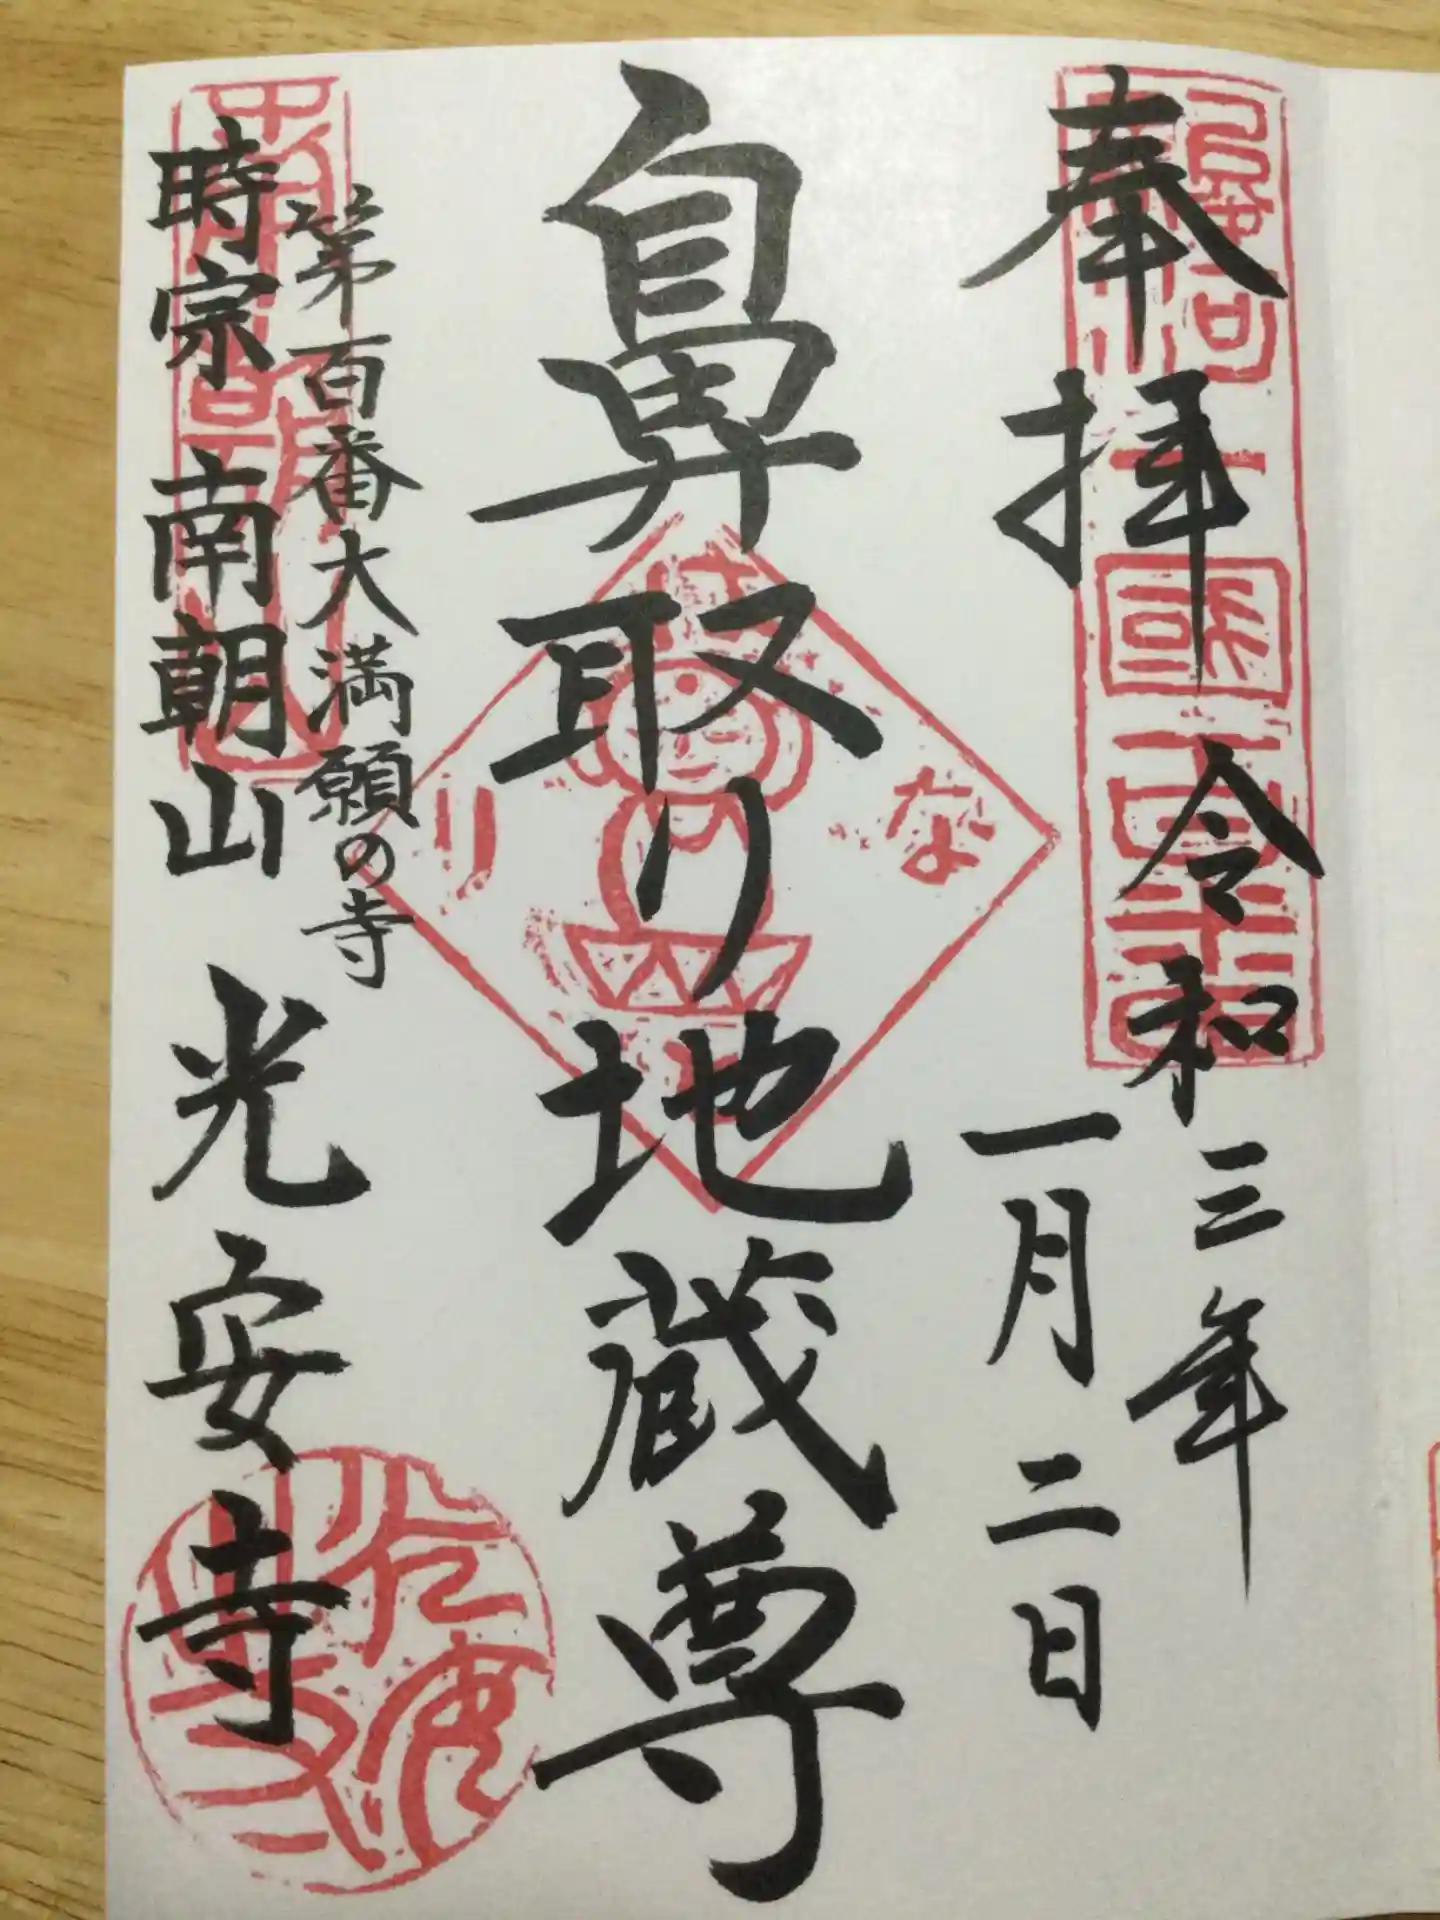 奉拝
令和三年
一月二日
鼻取り地蔵尊
なり
第百番大満願の寺
時宗 南朝山 光安寺